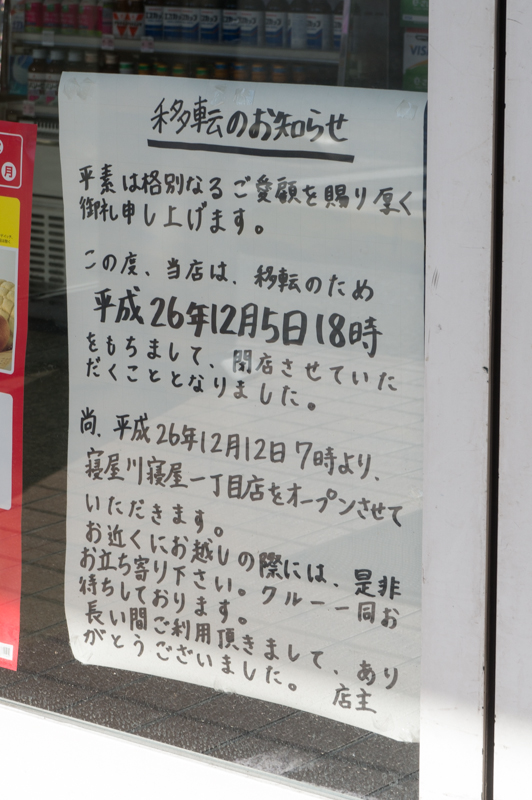 移転のお知らせ
平素は格別なるご愛顧を賜り厚く
御礼申し上げます。
この度、当店は、移転のため
平成26年12月5日18時
をもちまして、閉店させていた
だくこととなりました。
尚、平成26年12月12日7時より、
寝屋川寝屋一丁目店をオープンさせて
いただきます。
お近くにお越しの際には、是非
お立ち寄り下さい。クルー一同お
待ちしております。
長い間ご利用頂きまして、あり
がとうございました。
店主
月
VISA